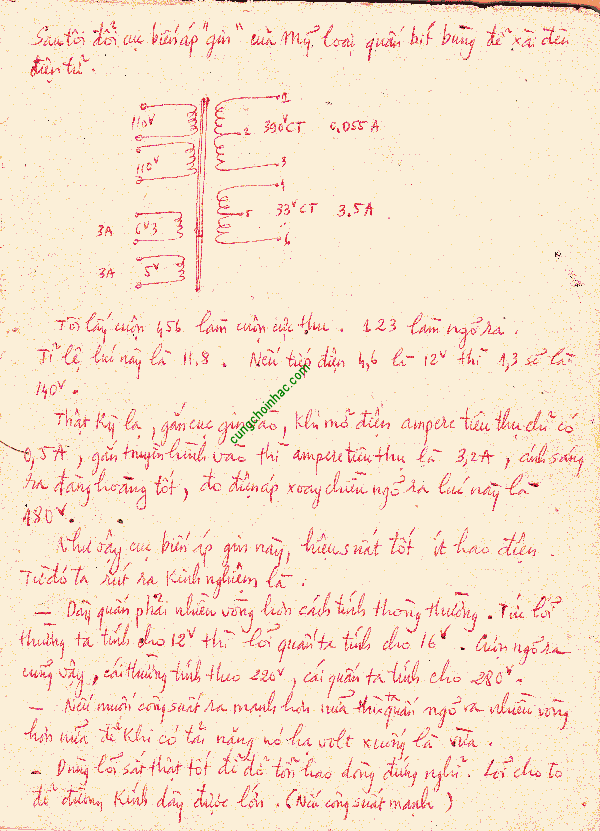 Sau tôi đổi cục biến áp "gin" của Mỹ loại quấn bít bùng để xài đèn
điện tử.
110V
110V
3A 6V3
3A 5V
1
2 390V CT 0.055A
3
4
5 33V CT 3.5A
6
Tôi lấy cuộn 456 làm cuộn cực thu. 123 làm ngõ ra.
Tỉ lệ lúc này là 11,8. Nếu tiếp điện 4,6 là 12V thì 1,3 sẽ là
140V.
Thật kỳ lạ, gắn cục gin vào, khi mở điện ampere tiêu thụ chỉ có
0,5A, gắn truyền hình vào thì ampere tiêu thụ là 3,2A, ánh sáng
ra đàng hoàng tốt, đo điện áp xoay chiều ngõ ra lúc này là
180V.
Như vậy cục biến áp gin này, hiệu suất tốt ít hao điện.
Từ đó ta rút ra kinh nghiệm là.
– Dây quấn phải nhiều vòng hơn cách tính thông thường. Tức lối
thường ta tính cho 12V thì lối quấn ta tính cho 16V. Cuộn ngõ ra
cũng vậy, cái thường tính theo 220V, cái quấn ta tính cho 280V.
– Nếu muốn công suất ra mạnh hơn nữa thì ta quấn ngõ ra nhiều vòng
hơn nữa để khi có tải nặng nó hạ volt xuống là vừa.
– Dùng lõi sắt thật tốt để đỡ tổn hao dòng đứng nghỉ. Lõi cho to
để đường kính dây được lớn. (Nếu công suất mạnh)
cungchoinhac.com